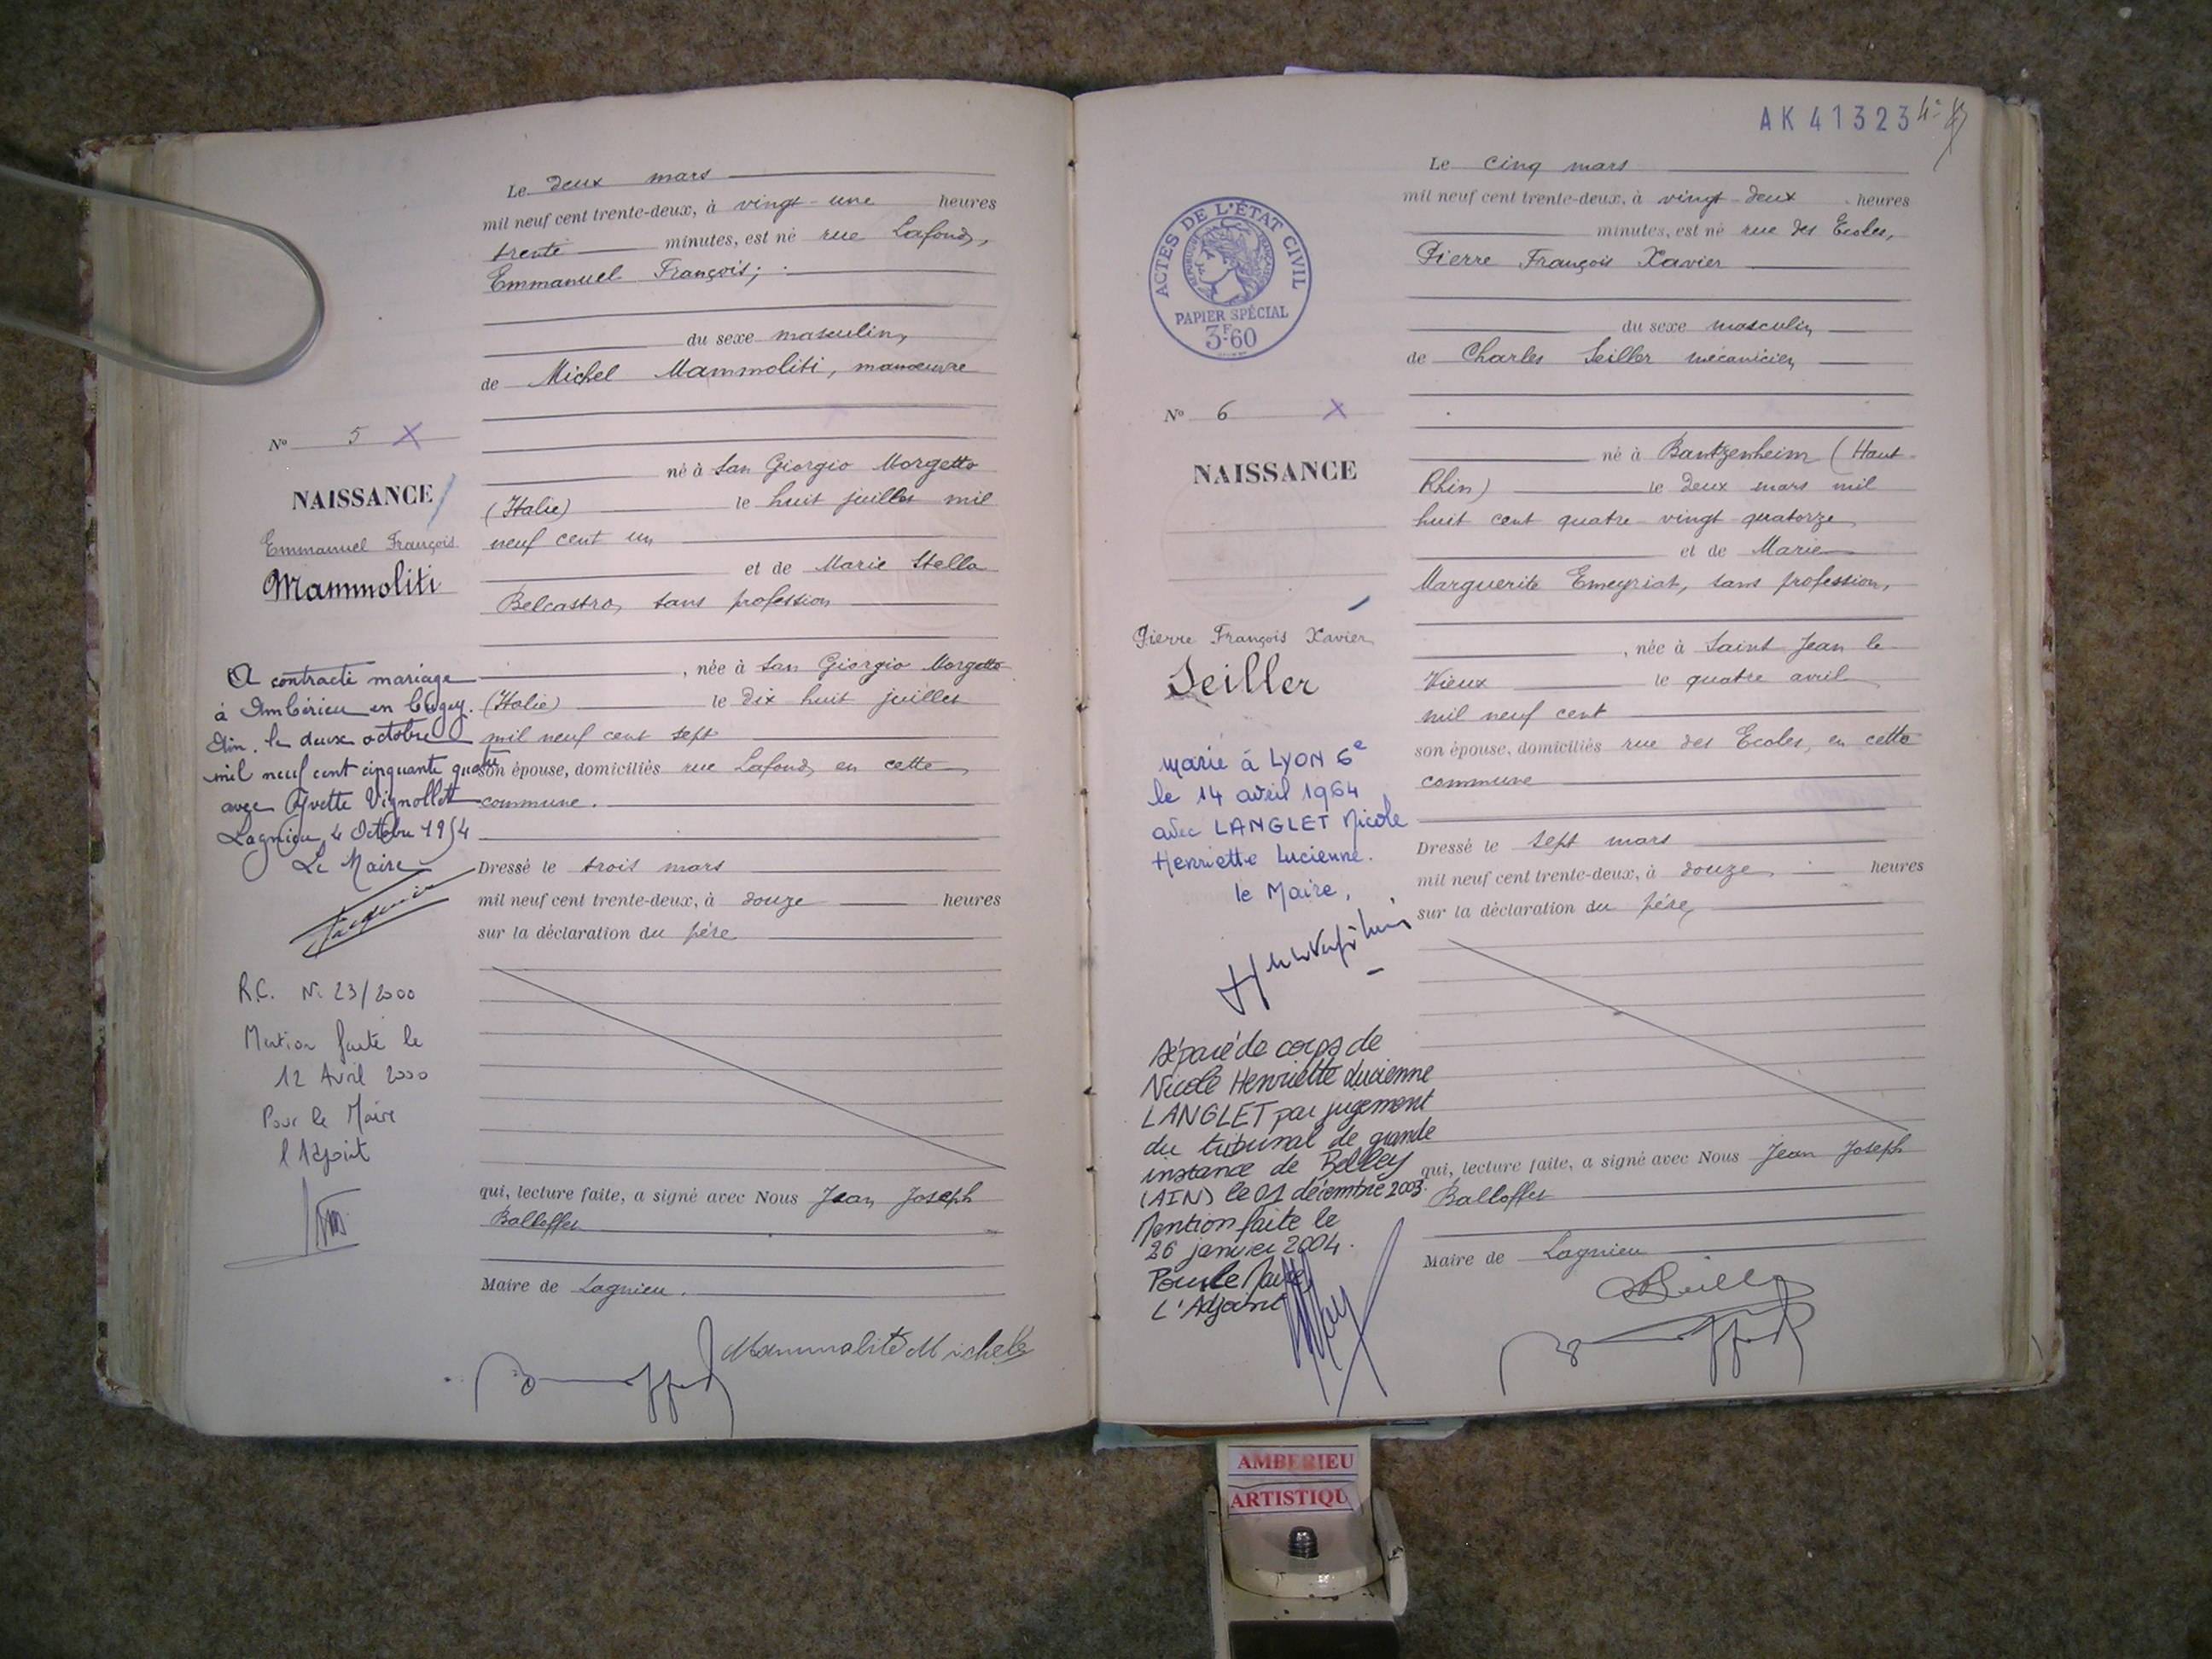 Le deux mars
mil neuf cent trente-deux, à vingt-une heures
trente minutes, est né rue Lafond,
Emmanuel François;
du sexe masculin,
de Michel Mammoliti, manoeuvre
né à San Giorgio Morgetto
(Italie) le huit juillet mil
neuf cent un
et de Marie Stella
Belcastro, sans profession
, née à San Giorgio Morgetto
(Italie) le dix huit juillet
mil neuf cent sept
son épouse, domiciliés rue Lafond, en cette
commune.
Dressé le trois mars
mil neuf cent trente-deux, à douze heures
sur la déclaration du père
qui, lecture faite, a signé avec Nous Jean Joseph
Balloffet
Maire de Lagnieu.
Mammoliti Michele
No 5 X
NAISSANCE
Emmanuel François
Mammoliti
A contracté mariage
à Ambérieu en Bugey.
Ain. le deux octobre
mil neuf cent cinquante quatre
avec Yvette Vignollet
Lagnieu, 4 Octobre 1954
Le Maire
R.C. N. 23/2000
Mention faite le
12 Avril 2000
Pour le Maire
l'Adjoint
AK 41323
Le cinq mars
mil neuf cent trente-deux, à vingt-deux heures
minutes, est né rue des Ecoles,
Pierre François Xavier
du sexe masculin,
de Charles Seiller mécanicien,
né à Bantzenheim (Haut-
Rhin) le deux mars mil
huit cent quatre-vingt-quatorze
et de Marie
Marguerite Emeyriat, sans profession,
, née à Saint Jean le
Vieux le quatre avril
mil neuf cent
son épouse, domiciliés rue des Ecoles, en cette
commune
Dressé le sept mars
mil neuf cent trente-deux, à douze, heures
sur la déclaration du père,
qui, lecture faite, a signé avec Nous Jean Joseph
Balloffet
Maire de Lagnieu
ACTES DE L'ÉTAT CIVIL
RÉPUBLIQUE FRANÇAISE
PAPIER SPÉCIAL
3F.60
No 6 X
NAISSANCE
Pierre François Xavier
Seiller
marié à LYON 6e
le 14 avril 1964
avec LANGLET Nicole
Henriette Lucienne.
le Maire,
Séparé de corps de
Nicole Henriette Lucienne
LANGLET par jugement
du tribunal de grande
instance de Belley
(AIN) le 01 décembre 2003.
Mention faite le
26 janvier 2004.
Pour le Maire
L'Adjoint
AMBERIEU
ARTISTIQU